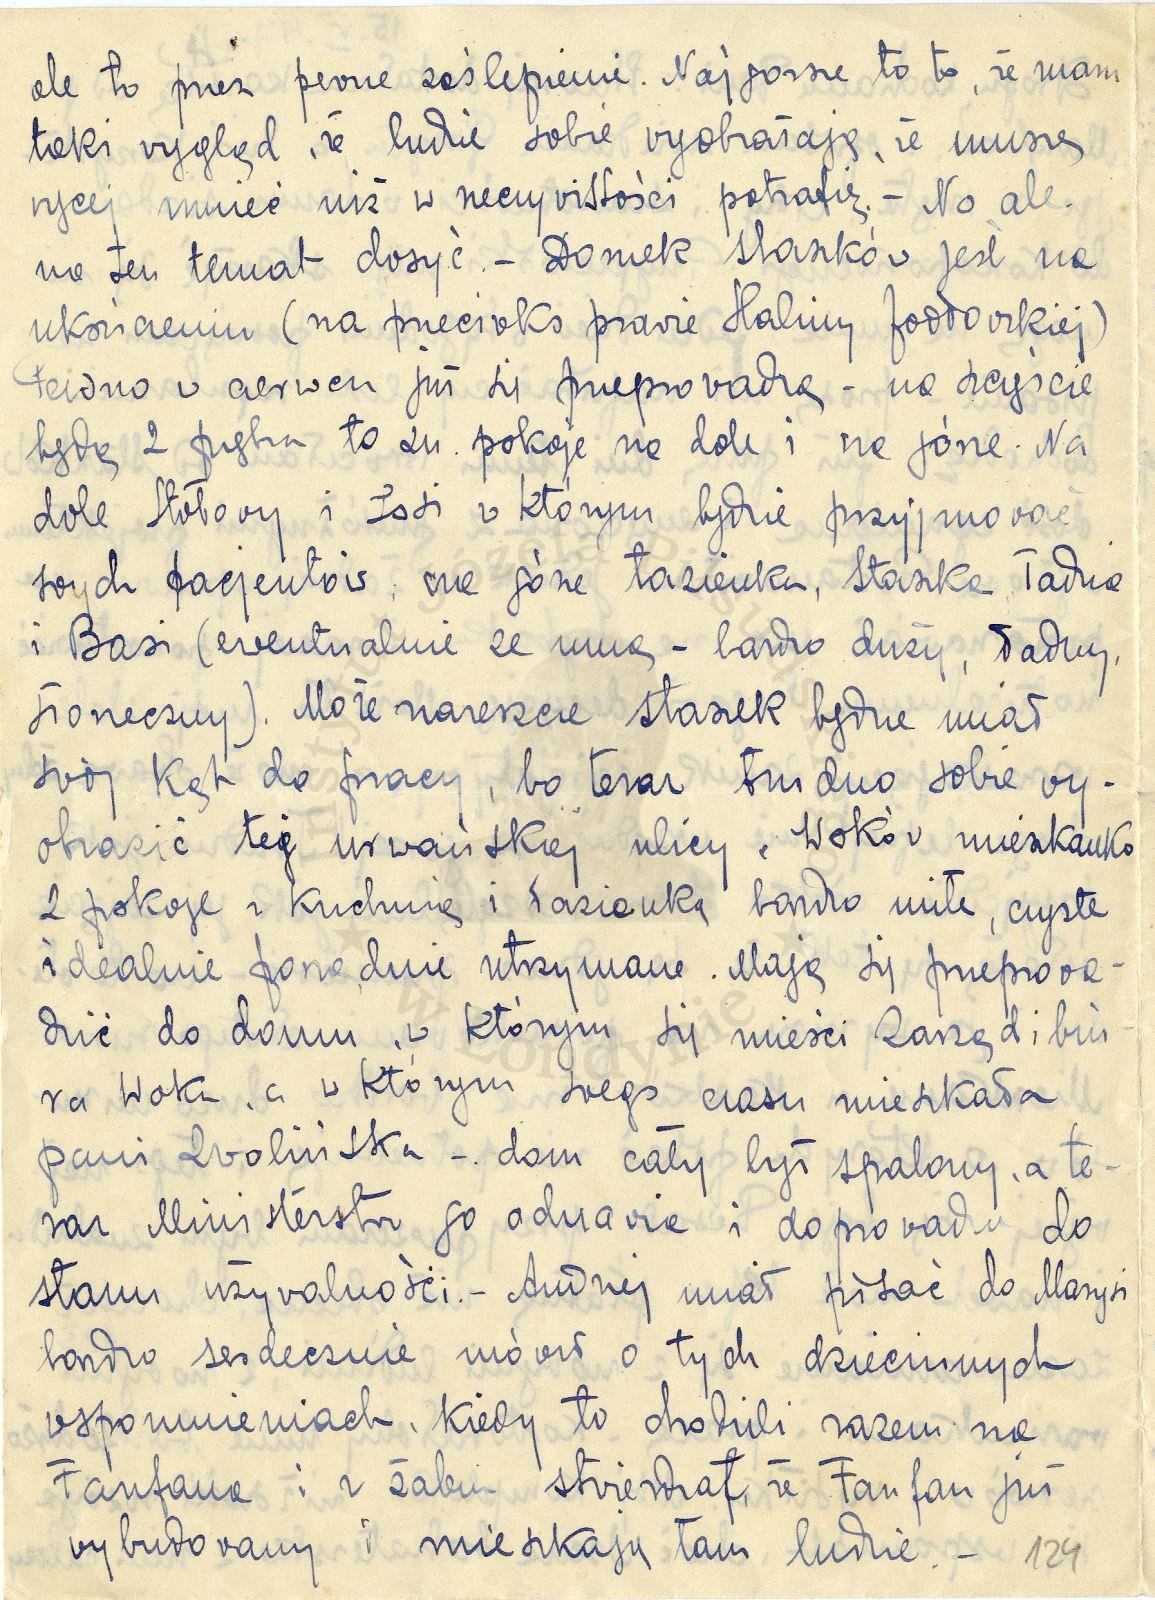 ale to przez pewne zaślepienie. Najgorsze to to, że mam
taki wygląd, że ludzie sobie wyobrażają, że muszę
więcej umieć niż w rzeczywistości potrafię. – No ale
na ten temat dosyć. – Domek Staszków jest na
ukończeniu (na przeciwko prawie Haliny
w czerwcu już się przeprowadzą – na szczęście
będą 2 piętra to zn. pokoje na dole i na górze. Na
dole stołowy i Zosi w którym będzie przyjmować
swych pacjentów, na górze łazienka, Staszka, Tadzia
i Basi (ewentualnie ze mną – bardzo duży, ładny,
słoneczny). Może nareszcie Staszek będzie miał
swój kąt do pracy, bo teraz trudno sobie wy-
obrazić tej urwańskiej ulicy. Woków mieszkanko
2 pokoje z kuchnią i łazienką bardzo miłe, czyste
idealnie porządnie utrzymane. Mają się przeprowa-
dzić do domu, w którym się mieści Zarząd i biu-
ra Woka, a w którym swego czasu mieszkała
pani Zwolińska –. dom cały był spalony, a te-
raz Ministerstw go odnawia i doprowadza do
stanu używalności. – Andrzej miał pisać do Marysi
bardzo serdecznie mówił o tych dziecinnych
wspomnieniach, kiedy to chodzili razem na
Fanfana i z żalem stwierdzał, że Fanfan już
wybudowany i mieszkają tam ludzie. –
124
Instytut Józefa Piłsudskiego
w Londynie